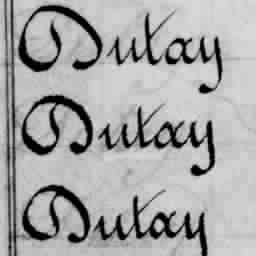 Dutay
Dutay
Dutay